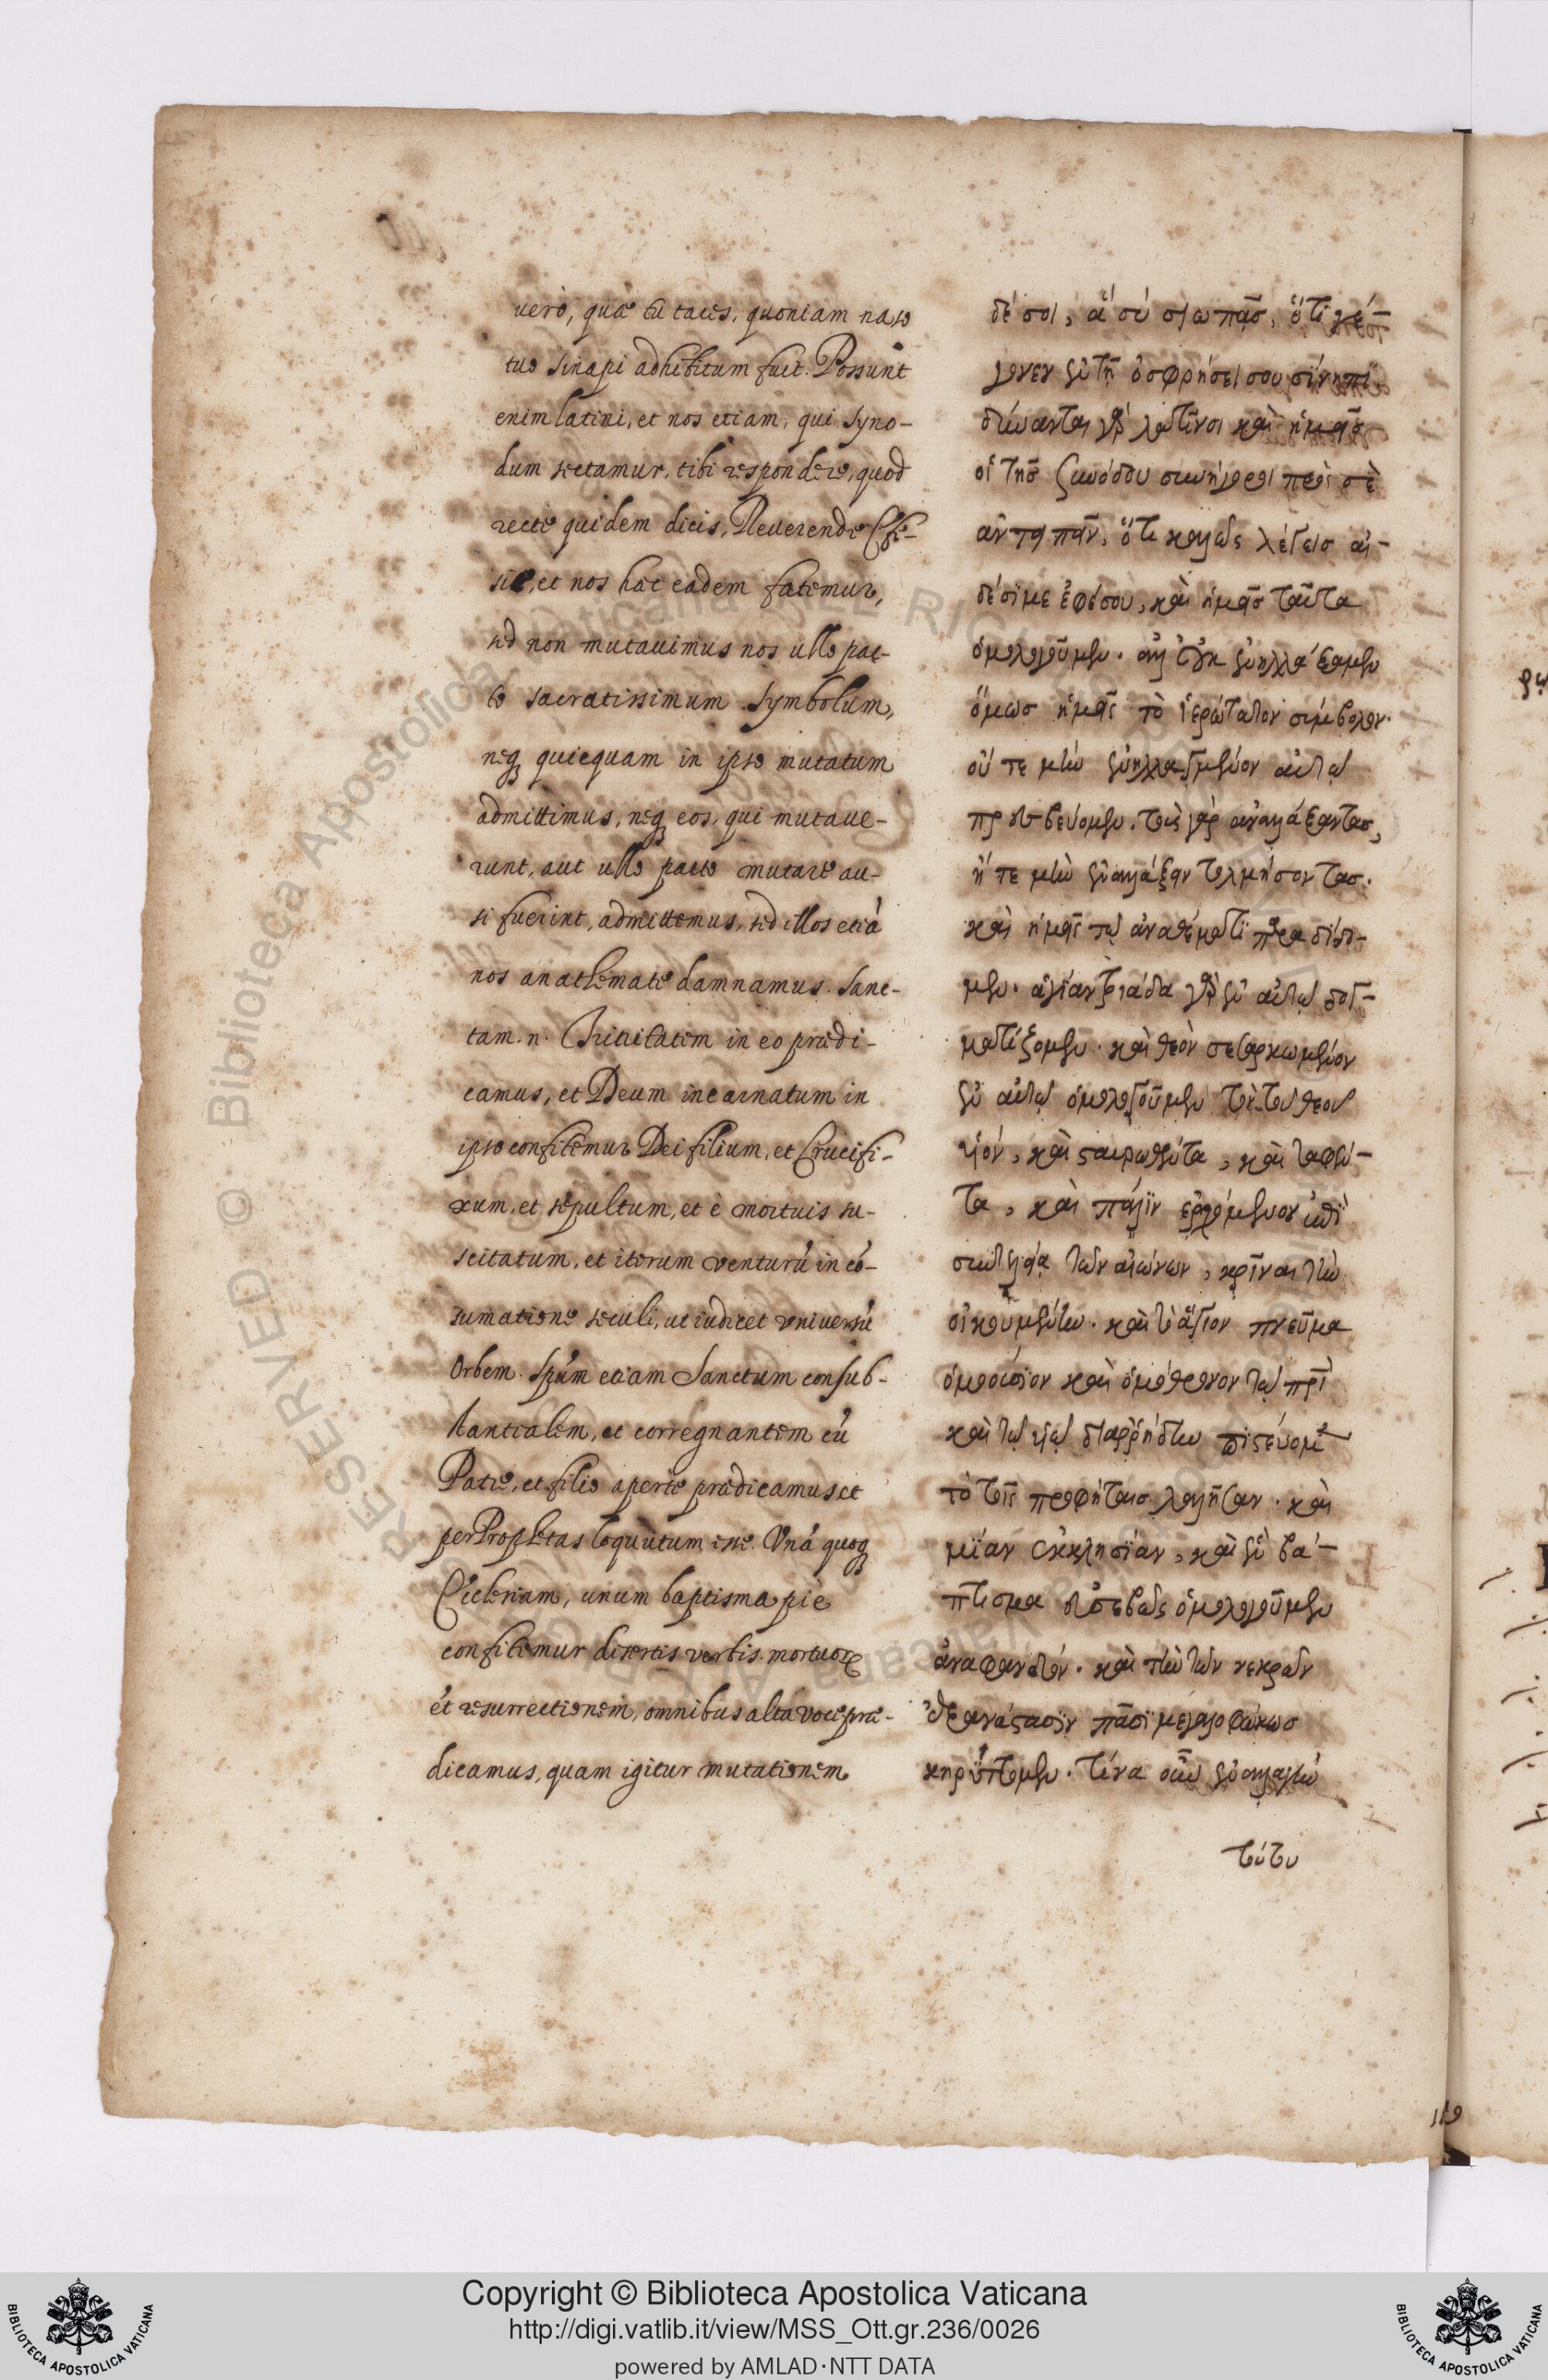 vero, quae tu taces, quoniam naso
tuo sinapi adhibitum fuit. Possunt
enim latini, et nos etiam, qui syno-
dum sectamur, tibi respondere, quod
recte quidem dicis, Reuerende Ephe-
sie, et nos hac eadem fatemur,
sed non mutauimus nos ullo pac-
to sacratissimum symbolum,
neq quicquam in ipso mutatum
admittimus, neq eos, qui mutaue-
runt, aut ullo pacto mutare au-
si fuerint, admittemus, sed illos etiā
nos anathemate damnamus. Sanc-
tam .n. Trinitatem in eo praedi-
camus, et Deum incarnatum in
ipso confitemur Dei filium, et Crucifi-
xum, et sepultum, et è mortuis su-
scitatum, et iterum venturū in cō-
sumatione seculi, ut iudicet vniuersū
Orbem. Spūm etiam Sanctum consub-
stantialem, et corregnantem cū
Patre, et filio aperte praedicamus et
per Prophetas loquutum esse. Vnā quoq
Ecclesiam, unum baptisma pie
confitemur disertis verbis. mortuor
et resurrectionem, omnibus alta voce prae-
dicamus, quam igitur mutationem
δέ σοι, ἃ σύ σιωπᾶσ, ὅτι γέ-
γονεν ἐν τῇ ὀσφρήσει σου σίνηπι.
δύνανται γὰρ λατῖνοι καὶ ἡμεῖσ
οἱ τῆσ συνόδου συνήγοροι πρὸς σὲ
ὅτι καλῶς λέγεισ αἰ-
δέσιμε ἐφέσου, καὶ ἡμεῖσ ταῦτα
ὁμολογοῦμεν. ἀλλ' οὐκ ἐνηλλάξαμεν
ὅμωσ ἡμεῖς τὸ ἱερώτατον σύμβολον.
οὔ τε μὴν ἐνηλλαγμένον αὐτῷ
πρεσβεύομεν.
ἤ τε μὴν ἐναλλάξαι τολμήσοντασ.
καὶ ἡμεῖς τῷ ἀναθέματι παραδίδο-
μεν. ἁγίαν τριάδα γὰρ ἐν αὐτῷ δογ-
ματίζομεν. καὶ θεὸν σεσαρκωμένον
ἐν αὐτῷ ὁμολογοῦμεν τὸν τοῦ θεοῦ
υἱόν, καὶ σταυρωθέντα, καὶ ταφέν-
τα, καὶ πάλιν ἐρχόμενον ἐπὶ
συντελείᾳ τῶν αἰώνων, κρῖναι τὴν
οἰκουμένην. καὶ τὸ ἅγιον πνεῦμα
ὁμοούσιον καὶ ὁμόθρονον τῷ πρὶ
καὶ τῷ υἱῷ διαρρήδην πιστεύομεν
τὸ τοῖς προφήταισ λαλῆσαν. καὶ
μίαν ἐκκλησίαν, καὶ ἓν βά-
πτισμα εὐσεβῶς ὁμολογοῦμεν
ἀναφανδόν. καὶ τὴν τῶν νεκρῶν
ἐξανάστασιν πᾶσι μεγαλοφώνωσ
κηρύττομεν. τίνα οὖν ἐναλλαγὴν
τούτου
119
Copyright © Biblioteca Apostolica Vaticana
http://digi.vatlib.it/view/MSS_Ott.gr.236/0026
powered by AMLAD·NTT DATA
BIBLIOTECA APOSTOLICA VATICANA
BIBLIOTECA APOSTOLICA VATICANA